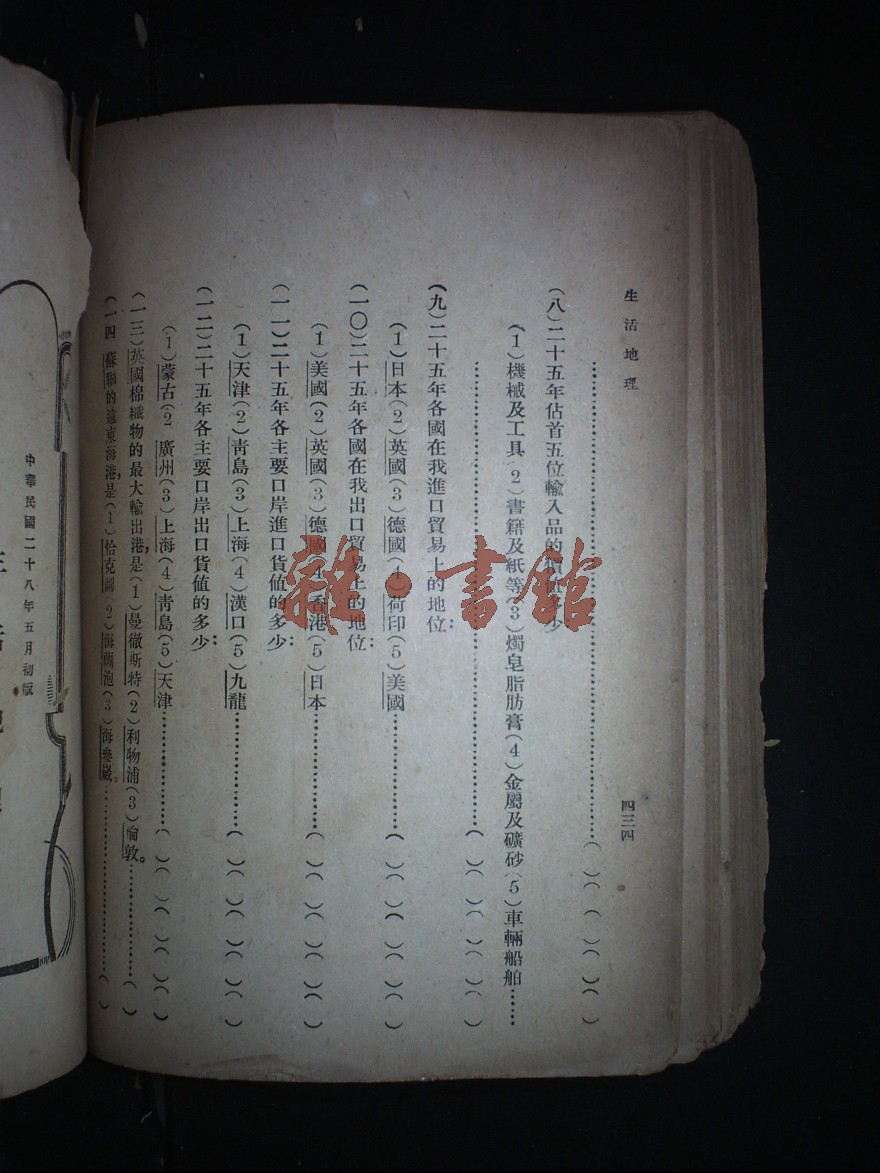 生活地理
四三四
……………………( )( )( )( )( )
(八)二十五年佔首五位輸入品的價值多少
(1)機械及工具(2)書籍及紙等(3)燭皂脂肪膏(4)金屬及礦砂(5)車輛船舶……
……………………( )( )( )( )( )
(九)二十五年各國在我進口貿易上的地位:
(1)日本(2)英國(3)德國(4)荷印(5)美國……………( )( )( )( )( )
(一〇)二十五年各國在我出口貿易上的地位:
(1)美國(2)英國(3)德國(4)香港(5)日本……………( )( )( )( )( )
(一一)二十五年各主要口岸進口貨值的多少:
(1)天津(2)青島(3)上海(4)漢口(5)九龍……………( )( )( )( )( )
(一二)二十五年各主要口岸出口貨值的多少:
(1)蒙古(2 廣州(3)上海(4)青島(5)天津……………( )( )( )( )( )
(一三)英國棉織物的最大輸出港,是(1)曼徹斯特(2)利物浦(3)倫敦。……………( )
(一四 蘇聯的遠東海港,是(1)恰克圖(2)海蘭泡(3)海參崴。……………( )
中華民國二十八年五月初版
雜·書館